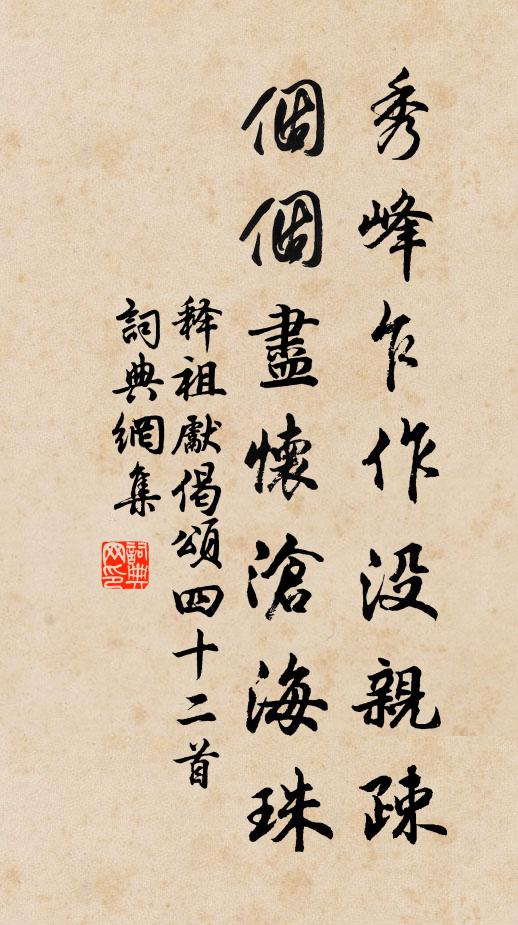 秀峰乍作没親疎
個個盡懷滄海珠
释祖獻偈頌四十二首
詞典網集
詞典网印